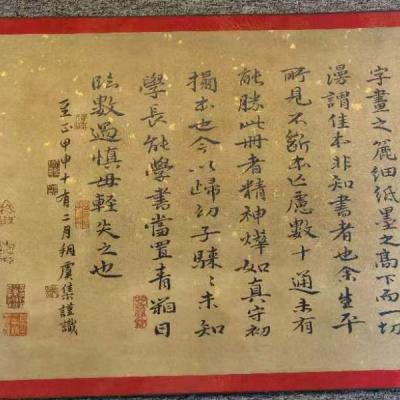 字畫之麤細紙墨之髙下而一切
漫謂佳本非知書者也余生平
所見不斷本亡慮數十通未有
能勝此冊者精神燁如真守初
搨本也今以歸幼子騋〻未知
學長能學書當置青箱日
臨數過慎毋輕失之也
至正甲申十有二月朔虞集謹識